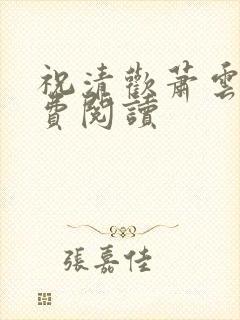 祝清歡蕭雲
費閱讀
張嘉佳